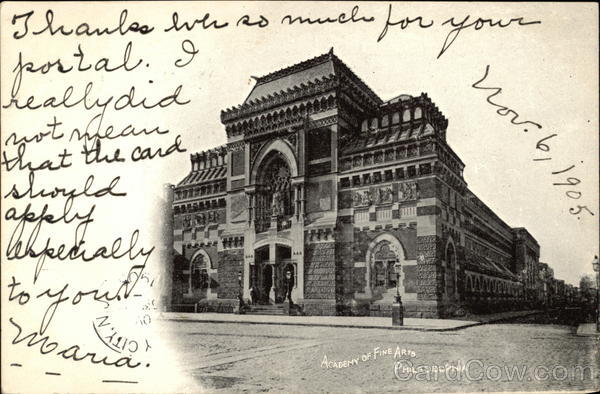 Thanks ever so much for your
portal. I
really did
not mean
that the card
should
apply
especially
to you.
Maria.
Nov. 6, 1905.
Academy of Fine Arts,
Philadelphia
CardCow.com